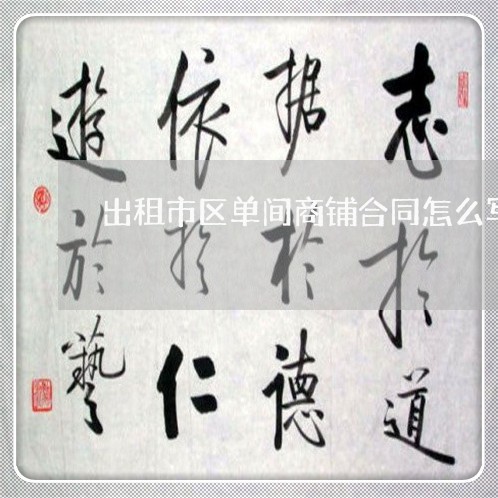 志於道
据於德
依於仁
遊於藝
出租市区单间商铺合同怎么写